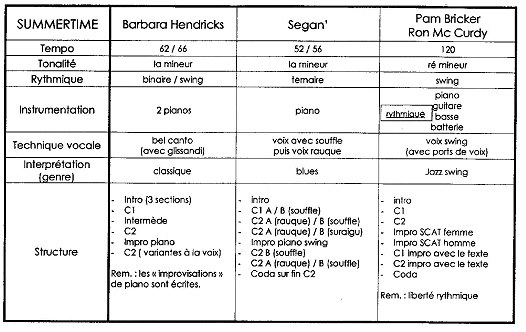 SUMMERTIME
Barbara Hendricks
Segan'
Pam Bricker
Ron Mc Curdy
Tempo
62 / 66
52 / 56
120
Tonalité
la mineur
la mineur
ré mineur
Rythmique
binaire / swing
ternaire
swing
Instrumentation
2 pianos
piano
rythmique
piano
guitare
basse
batterie
Technique vocale
bel canto
(avec glissandi)
voix avec souffle
puis voix rauque
voix swing
(avec ports de voix)
Interprétation
(genre)
classique
blues
Jazz swing
Structure
- Intro (3 sections)
- C1
- Intermède
- C2
- Impro piano
- C2 ( variantes à la voix)
Rem. : les « improvisations »
de piano sont écrites.
- intro
- C1 A / B (souffle)
- C2 A (rauque) / B (souffle)
- C2 A (rauque) / B (suraigu)
- Impro piano swing
- C2 B (souffle)
- C2 A (rauque) / B (souffle)
- Coda sur fin C2
- intro
- C1
- C2
- Impro SCAT femme
- Impro SCAT homme
- C1 impro avec le texte
- C2 impro avec le texte
- Coda
Rem. : liberté rythmique